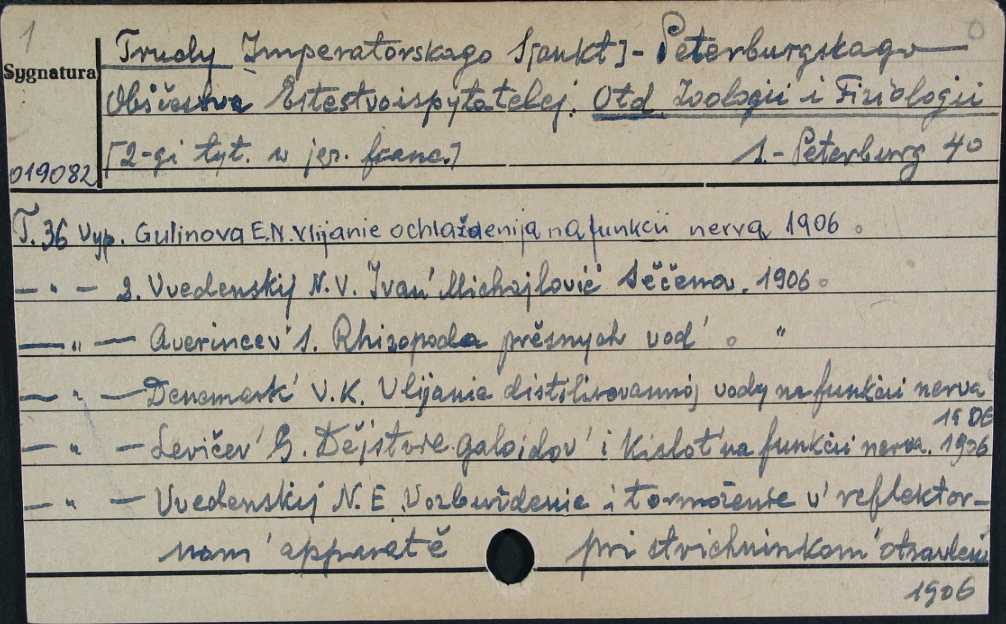 1
0
Trudy Imperatorskago S[ankt]-Peterburgskago
Sygnatura
Obščestva Estestvoispytatelej. Otd Zoologii i Fiziologii
019082
[2-gi tyt. w jęz. franc.] S.-Peterburg 4o
T. 36 Vyp. Gulinova E.N. Vlijanie ochlaždenija na funkcii nerva 1906 o
— " — 2. Vvedenskij N.V. Ivan' Michajlovič Sěčenov. 1906 o
— " — Averincev' S. Rhizopoda prěsnych vod' o "
— " — Denemark' V.K. Vlijanie distilirovannoj vody na funkcii nerva
1906
— " — Levičev' G. Dějstvie galoidov' i kislot' na funkcii nerva. 1906
— " — Vvedenskij N.E. Vozbuždenie i tormoženie v' reflektor-
nom' apparatě pri strichninkom' otravlenii
1906